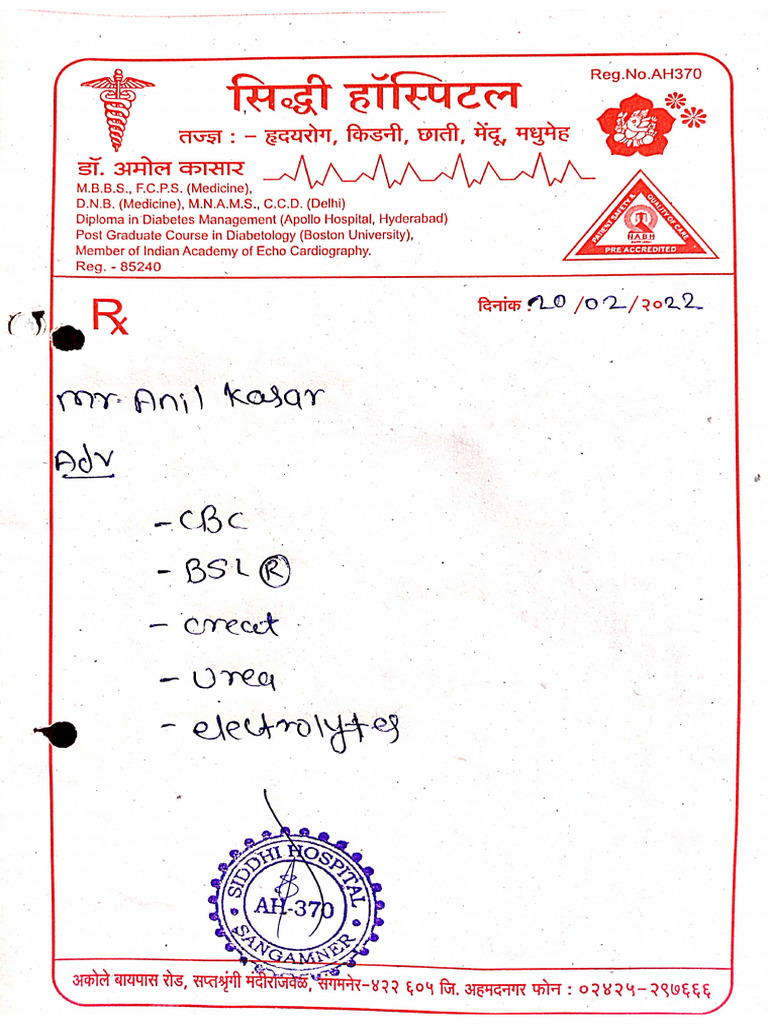 Reg.No.AH370
सिद्धी हॉस्पिटल
तज्ज्ञ : - हृदयरोग, किडनी, छाती, मेंदू, मधुमेह
डॉ. अमोल कासार
M.B.B.S., F.C.P.S. (Medicine),
D.N.B. (Medicine), M.N.A.M.S., C.C.D. (Delhi)
Diploma in Diabetes Management (Apollo Hospital, Hyderabad)
Post Graduate Course in Diabetology (Boston University),
Member of Indian Academy of Echo Cardiography.
Reg. - 85240
PATIENT SAFETY & QUALITY OF CARE
NABH
PRE ACCREDITED
Rx
दिनांक : 20/02/२०22
Mr. Anil Kasar
Adv
- CBC
- BSL (R)
- creat
- Urea
- electrolytes
SIDDHI HOSPITAL
AH-370
SANGAMNER
अकोले बायपास रोड, सप्तश्रृंगी मंदीराजवळ, संगमनेर-४२२ ६०५ जि. अहमदनगर फोन : ०२४२५-२९७६६६